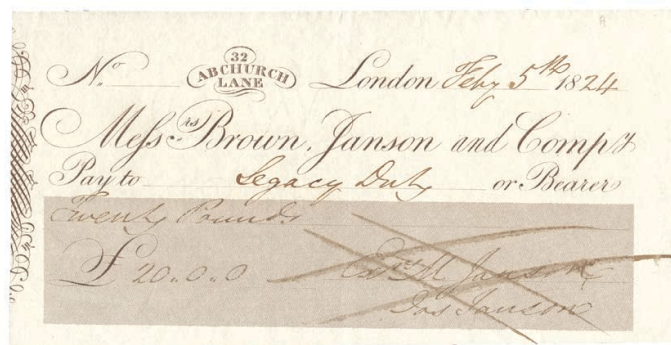 No 32 ABCHURCH LANE London Feby 5th 1824
Messrs Brown, Janson and Compy
Pay to Legacy Duty or Bearer
Twenty Pounds
£ 20..0..0 M Janson
Jas Janson